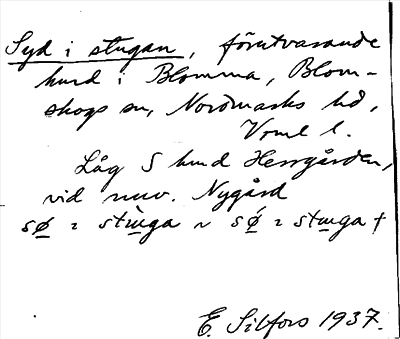 Syd i stugan, förutvarande
hmd i Blomma, Blom-
skogs sn, Nordmarks hd,
Vrml l.
Låg S hmd Herrgården,
vid nuv. Nygård
E. Silfors 1937.